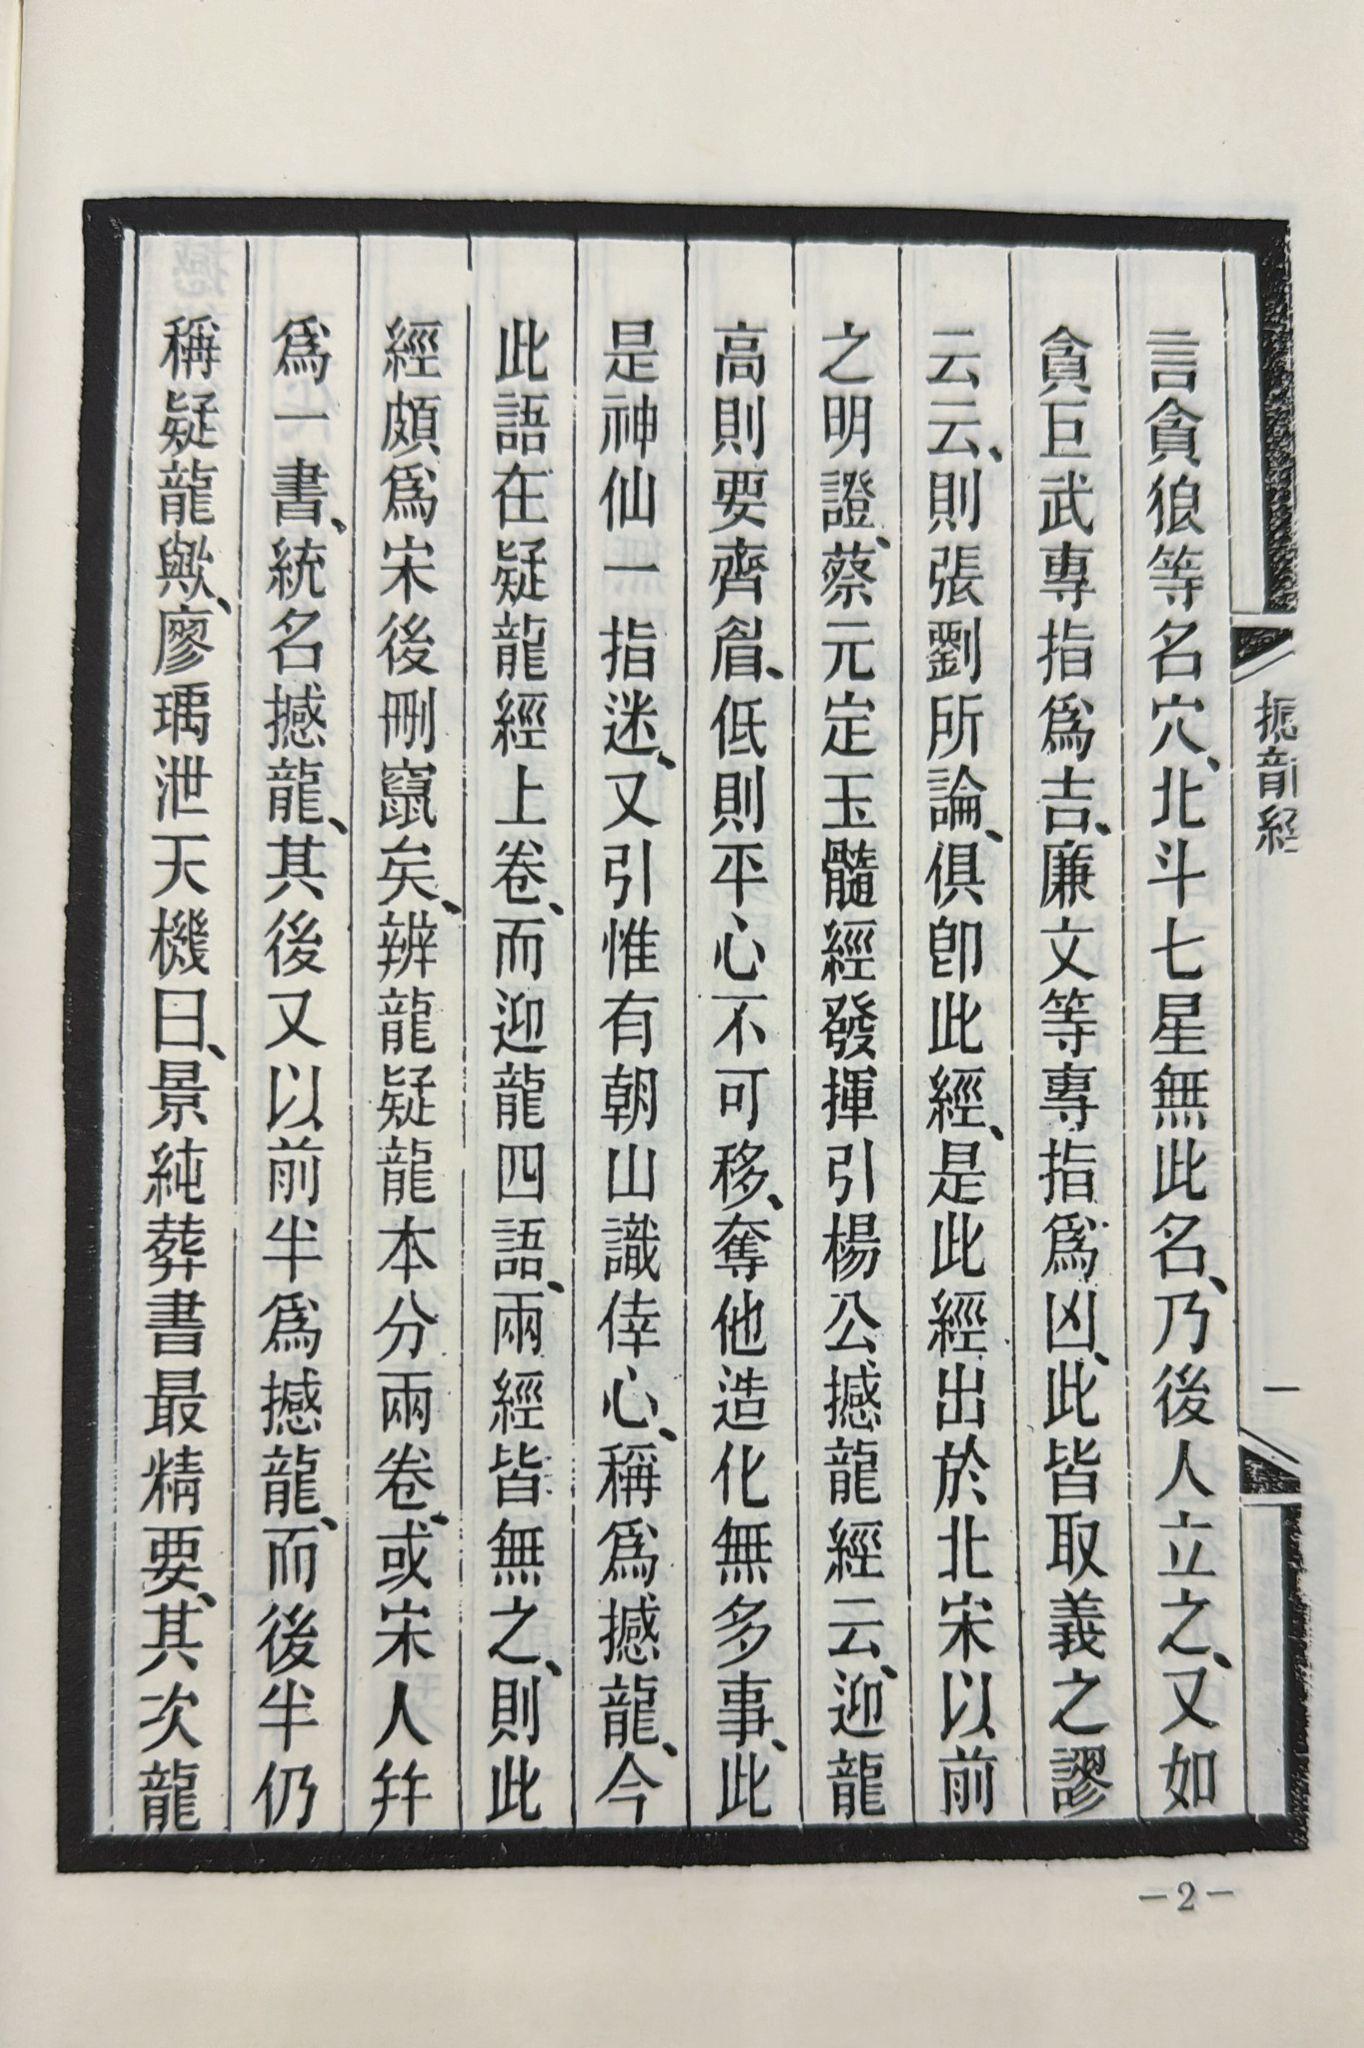 撼龍經
一
言貪狼等名穴、北斗七星無此名、乃後人立之、又如
貪巨武專指爲吉、廉文等專指爲凶、此皆取義之謬
云云、則張劉所論、俱卽此經、是此經出於北宋以前
之明證、蔡元定玉髓經發揮引楊公撼龍經云、迎龍
高則要齊眉、低則平心不可移、奪他造化無多事、此
是神仙一指迷、又引惟有朝山識倖心、稱爲撼龍、今
此語在疑龍經上卷、而迎龍四語、兩經皆無之、則此
經頗爲宋後刪竄矣、辨龍疑龍本分兩卷、或宋人幷
爲一書、統名撼龍、其後又以前半爲撼龍、而後半仍
稱疑龍歟、廖瑀泄天機曰、景純葬書最精要、其次龍
－2－